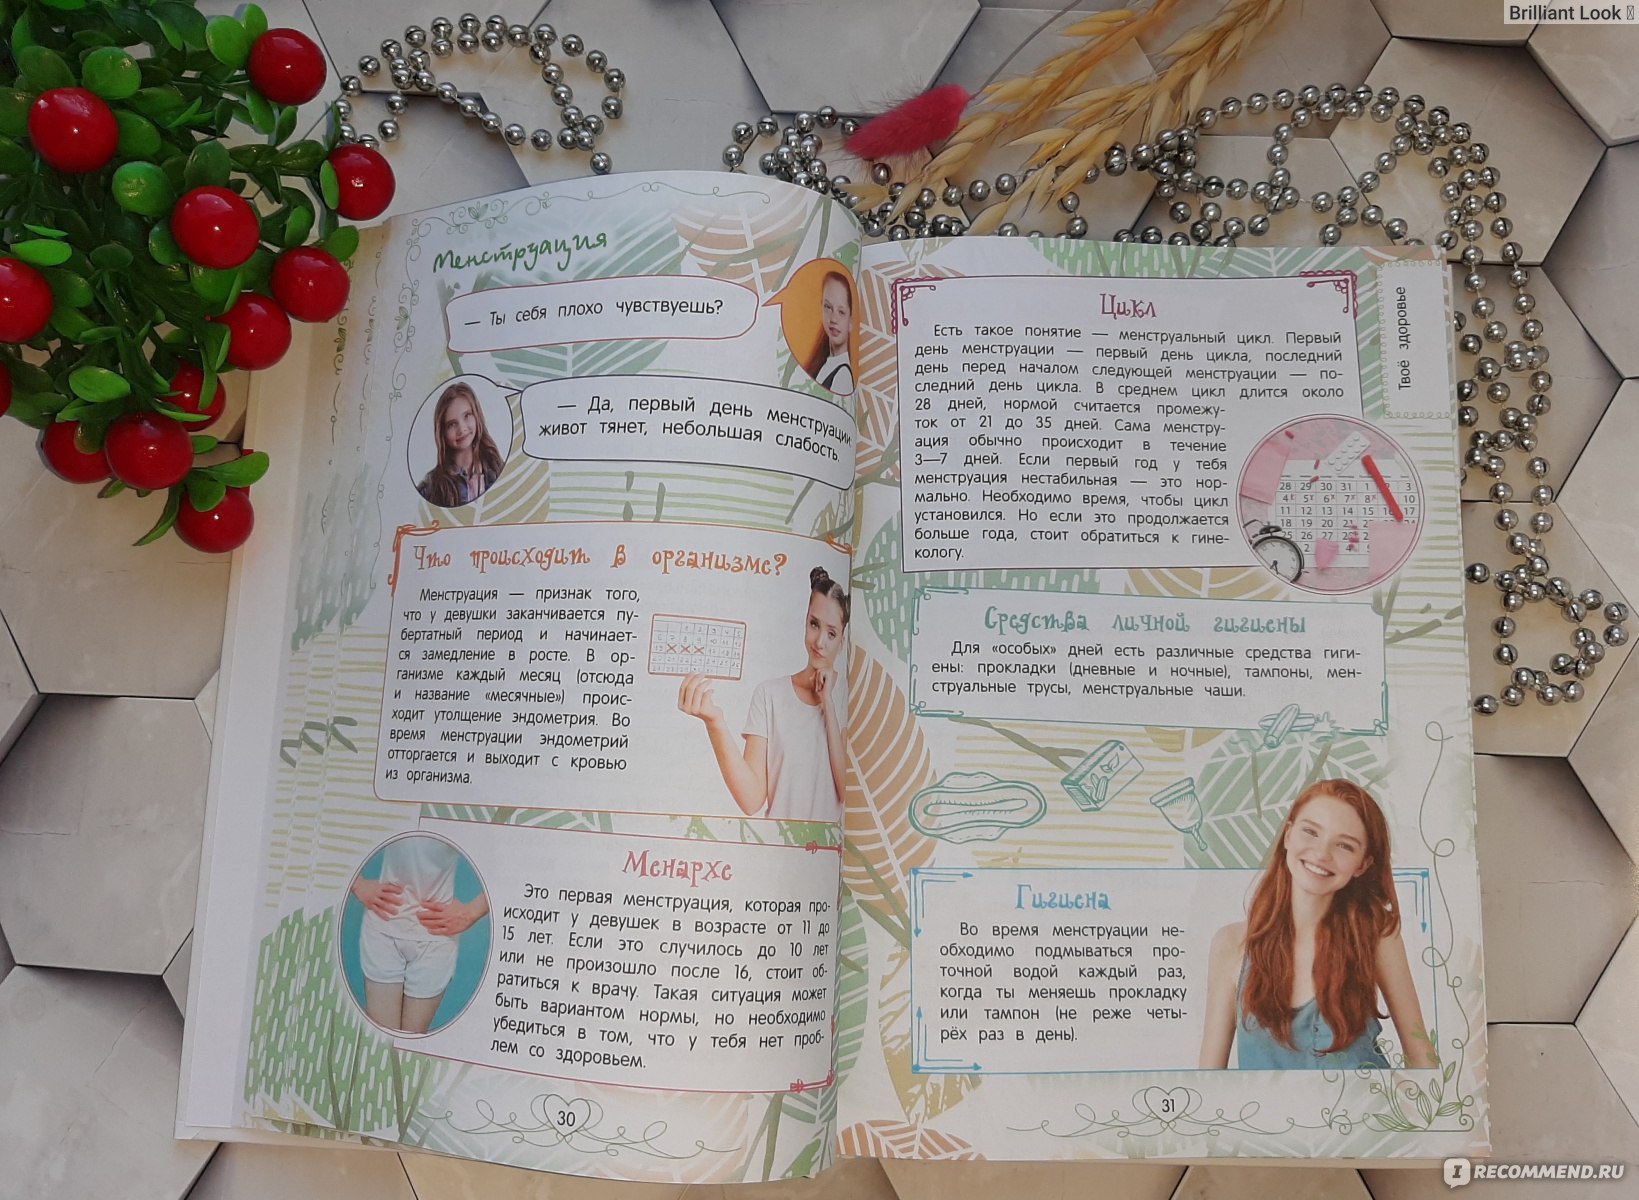 Brilliant Look
Менструация
— Ты себя плохо чувствуешь?
— Да, первый день менструации:
живот тянет, небольшая слабость.
Что происходит в организме?
Менструация — признак того,
что у девушки заканчивается пу-
бертатный период и начинает-
ся замедление в росте. В ор-
ганизме каждый месяц (отсюда
и название «месячные») проис-
ходит утолщение эндометрия. Во
время менструации эндометрий
отторгается и выходит с кровью
из организма.
Менархе
Это первая менструация, которая про-
исходит у девушек в возрасте от 11 до
15 лет. Если это случилось до 10 лет
или не произошло после 16, стоит об-
ратиться к врачу. Такая ситуация может
быть вариантом нормы, но необходимо
убедиться в том, что у тебя нет проб-
лем со здоровьем.
30
Твоё здоровье
Цикл
Есть такое понятие — менструальный цикл. Первый
день менструации — первый день цикла, последний
день перед началом следующей менструации — по-
следний день цикла. В среднем цикл длится около
28 дней, нормой считается промежу-
ток от 21 до 35 дней. Сама менстру-
ация обычно происходит в течение
3—7 дней. Если первый год у тебя
менструация нестабильная — это нор-
мально. Необходимо время, чтобы цикл
установился. Но если это продолжается
больше года, стоит обратиться к гине-
кологу.
28 29 30 31 1 2 3
4 5 6 7 8 9 10
11 12 13 14 15 16 17
18 19 20 21
25 26 27 28
Средства личной гигиены
Для «особых» дней есть различные средства гиги-
ены: прокладки (дневные и ночные), тампоны, мен-
струальные трусы, менструальные чаши.
Гигиена
Во время менструации не-
обходимо подмываться про-
точной водой каждый раз,
когда ты меняешь прокладку
или тампон (не реже четы-
рёх раз в день).
31
IRECOMMEND.RU